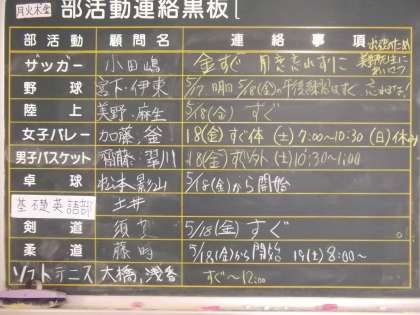 月火木金 部活動連絡黒板
部活動 顧問名 連絡事項
サッカー 小田嶋 金すぐ 用意忘れずに
野球 宮下・伊東 5/17 明日 5/18(金)の午後練習はすぐ 忘れるな!
陸上 美野・麻生 5/18(金) すぐ
女子バレー 加藤, 釜 18(金)すぐ体 (土)7:00〜10:30 (日)休み
男子バスケット 稲藤・ 18(金)すぐ外 (土)10:30〜1:00
卓球 松本・影山 5/18(金)から開始
基礎英語部 土井
剣道 5/18(金)すぐ
柔道 5/18(金)から開始 19(土)8:00〜
ソフトテニス 大橋, 浅香 すぐ〜12:00